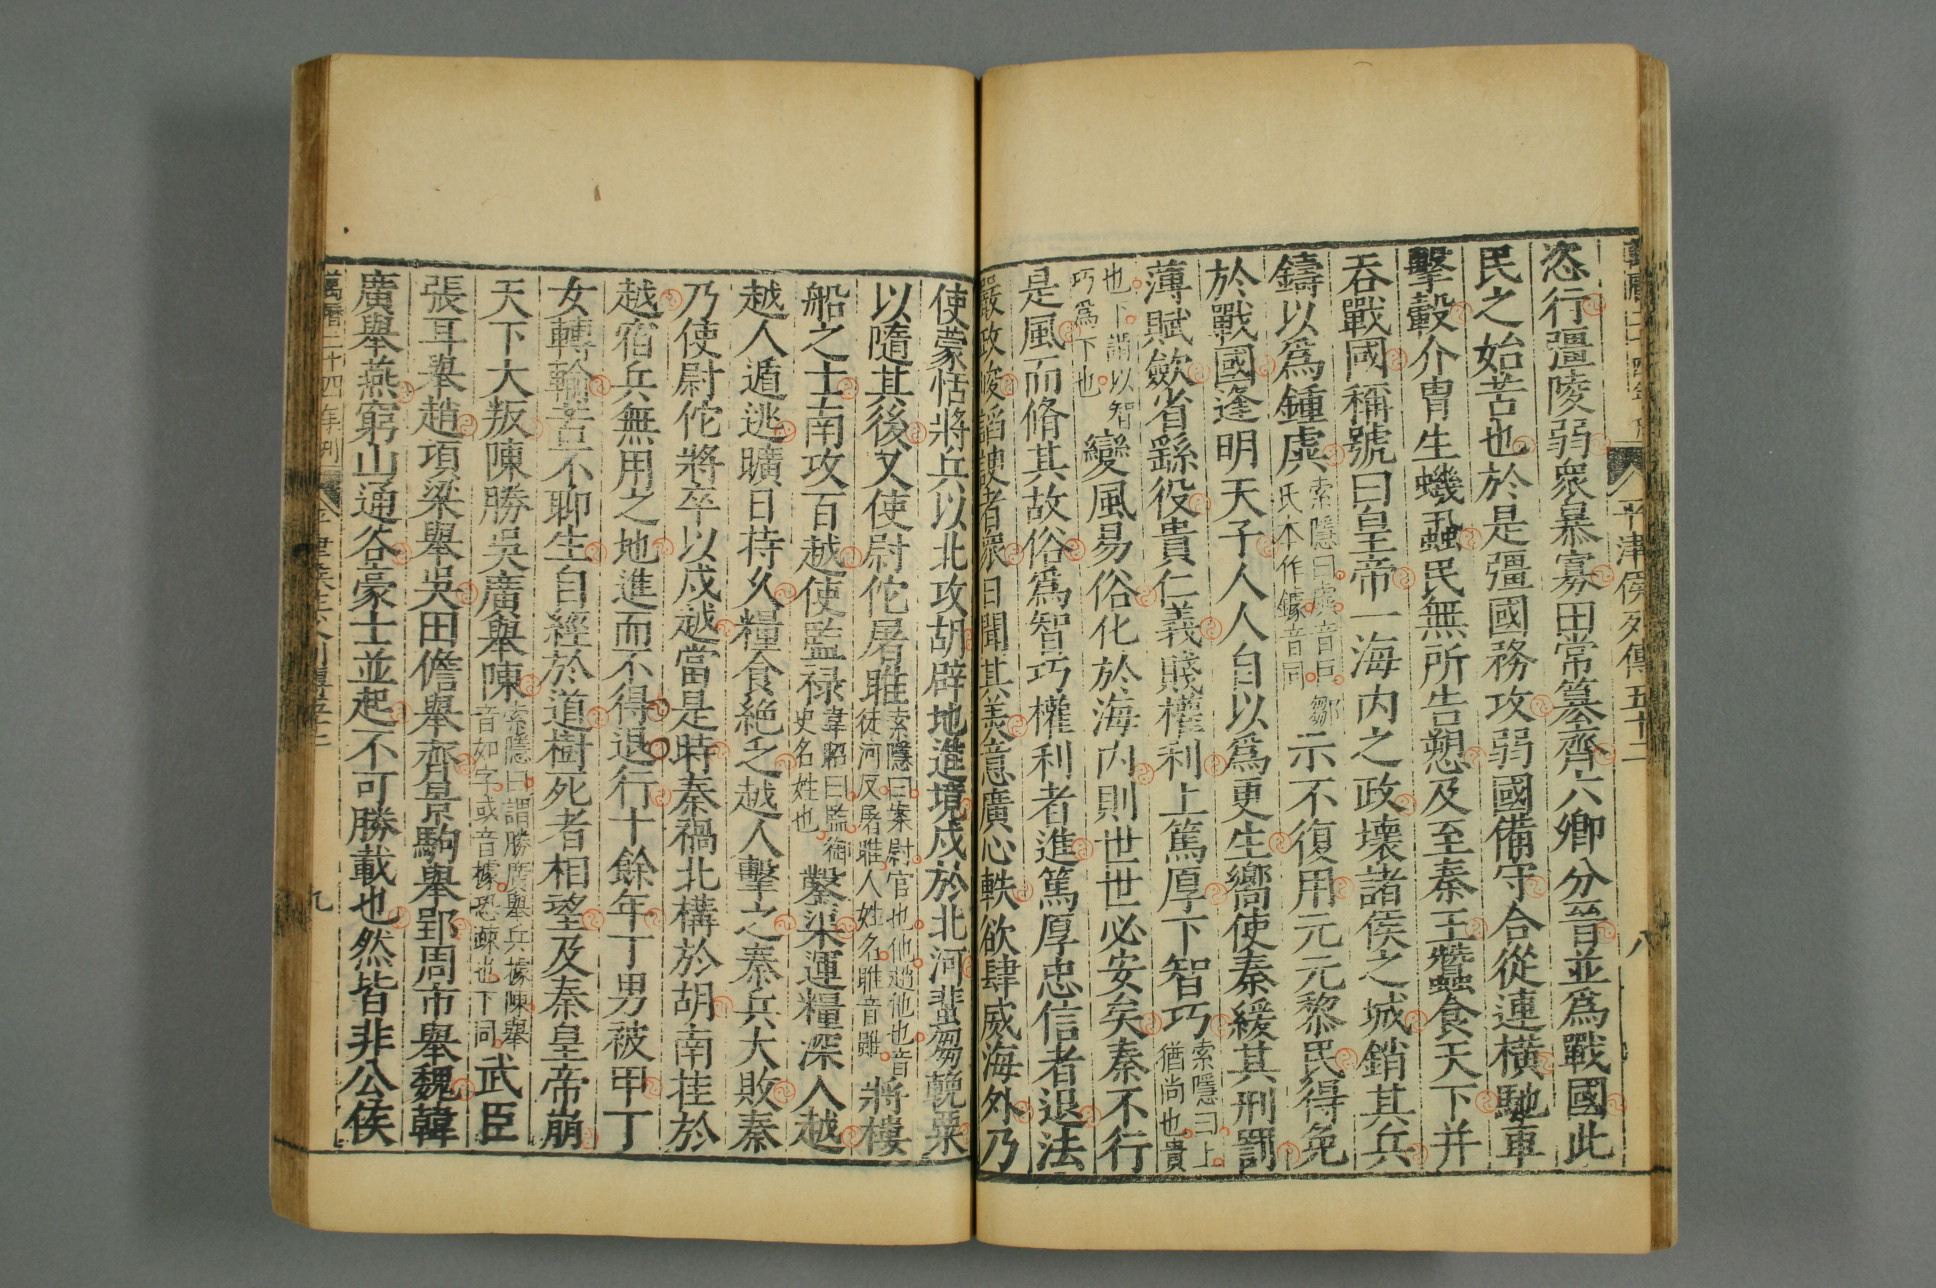 平津侯列傳五十二
八
恣行彊陵弱衆暴寡田常篡齊六卿分晉並爲戰國此
民之始苦也於是彊國務攻弱國備守合從連橫馳車
擊轂介冑生蟣蝨民無所告愬及至秦王蠶食天下并
吞戰國稱號曰皇帝一海内之政壞諸侯之城銷其兵
鑄以爲鍾虡索隱曰虡音巨鄒氏本作鐻音同示不復用元元黎民得免
於戰國逢明天子人人自以爲更生嚮使秦緩其刑罰
薄賦斂省繇役貴仁義賤權利上篤厚下智巧索隱曰上猶尚也貴
也下謂以智巧爲下也變風易俗化於海内則世世必安矣秦不行
是風而脩其故俗爲智巧權利者進篤厚忠信者退法
嚴政峻諂諛者衆日聞其美意廣心軼欲肆威海外乃
使蒙恬將兵以北攻胡辟地進境戍於北河蜚芻輓粟
以隨其後又使尉佗屠睢索隱曰案尉官也他趙他也音徒河反屠睢人姓名睢音雖將樓
船之士南攻百越使監祿韋昭曰監御史名姓也鑿渠運糧深入越
越人遁逃曠日持久糧食絶乏越人擊之秦兵大敗秦
乃使尉佗將卒以戍越當是時秦禍北構於胡南挂於
越宿兵無用之地進而不得退行十餘年丁男被甲丁
女轉輸苦不聊生自經於道樹死者相望及秦皇帝崩
天下大叛陳勝吳廣舉陳索隱曰謂勝廣舉兵據陳舉音如字或音據恐疎也下同武臣
張耳舉趙項梁舉吳田儋舉齊景駒舉郢周市舉魏韓
廣舉燕窮山通谷豪士並起不可勝載也然皆非公侯
萬曆二十四年刊
九